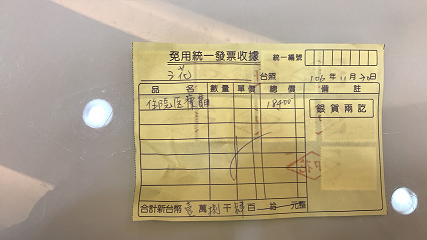 免用統一發票收據 統一編號
三花 台照 106年11月30日
品名 數量 單價 總價 備註
住院医療費用 18400 銀貨兩訖
合計新台幣壹萬捌千肆百拾元整